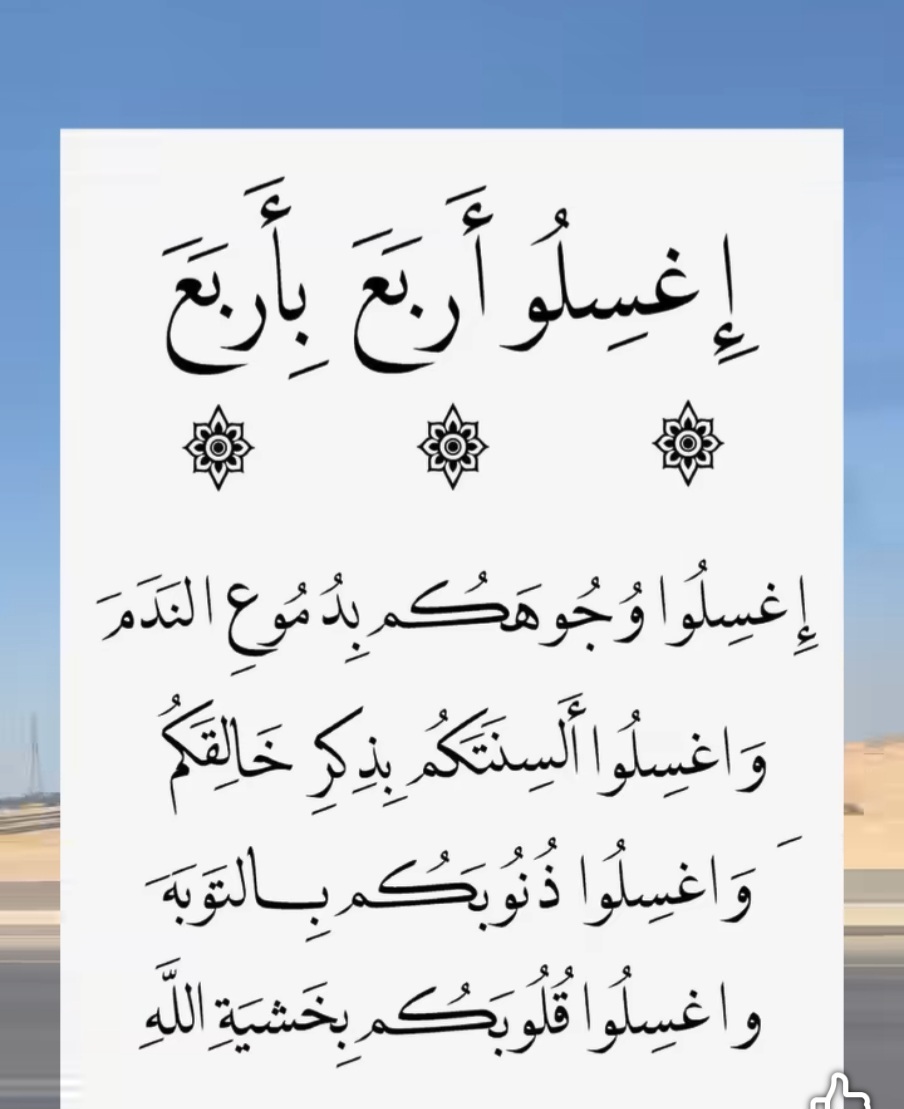 إِغسِلُو أَربَعَ بِأَربَعَ
إِغسِلُوا وُجُوهَكُم بِدُمُوعِ النَدَمَ
وَاغسِلُوا أَلسِنَتَكُم بِذِكرِ خَالِقَكُم
وَاغسِلُوا ذُنُوبَكُم بــالتَوبَهَ
واغسِلُوا قُلُوبَكُم بِخَشيَةِ اللَّهِ